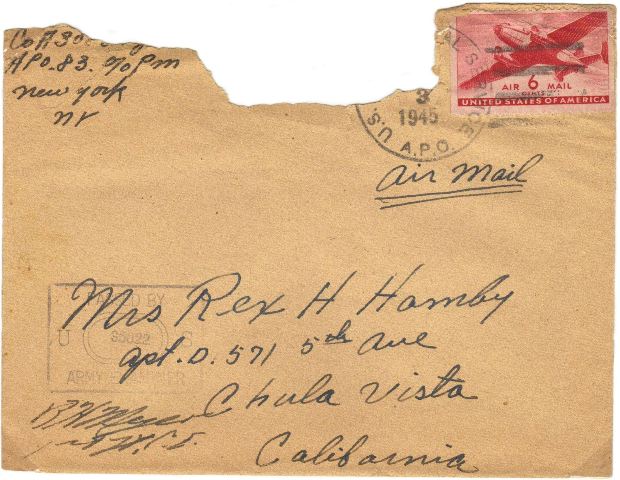 Co A 30
APO. 83. % Pm
new york
ny
AL SERVICE
3
1945
U.S. A.P.O.
AIR 6 MAIL
CENTS
UNITED STATES OF AMERICA
Air Mail
Mrs Rex H Hamby
apt. D. 571 5th Ave
Chula Vista
California
BY
U S
ARMY